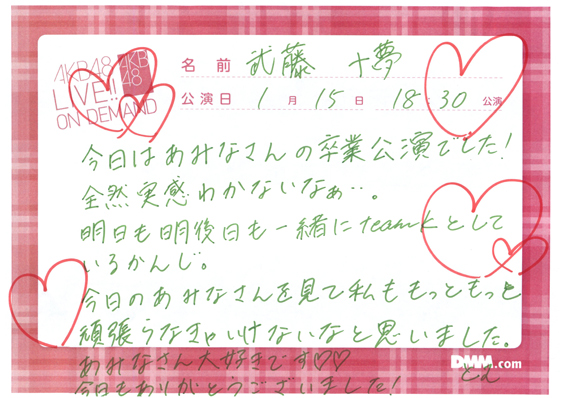 AKB48
LIVE!!
ON DEMAND
AKB
48
名前 武藤 十夢
公演日 1月15日 18:30 公演
今日はあみなさんの卒業公演でした!
全然実感わかないなぁ・・。
明日も明後日も一緒にteamKとして
いるかんじ。
今日のあみなさんを見て私ももっともっと
頑張らなきゃいけないなと思いました。
あみなさん大好きです♡♡
今日もありがとうございました!
DMM.com
とむ